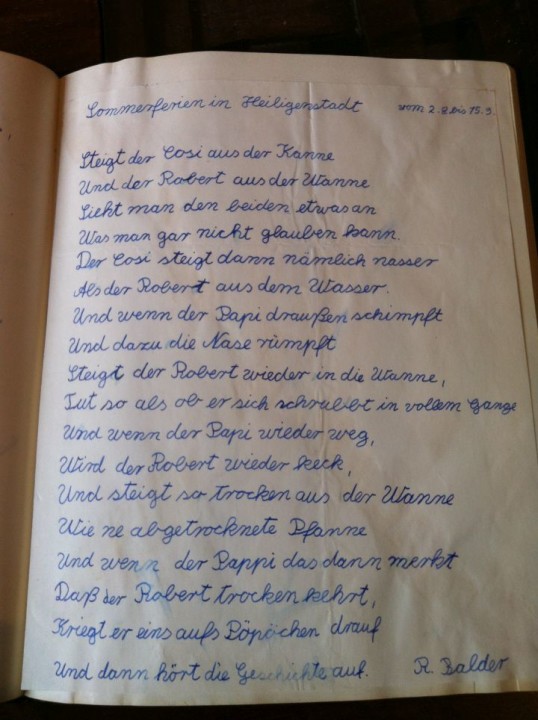 Sommerferien in Heiligenstadt vom 2.8 bis 15.9.
Steigt der Cosi aus der Kanne
Und der Robert aus der Wanne
Sieht man den beiden etwas an
Was man gar nicht glauben kann.
Der Cosi steigt dann nämlich nasser
Als der Robert aus dem Wasser.
Und wenn der Papi draußen schimpft
Und dazu die Nase rümpft
Steigt der Robert wieder in die Wanne,
Tut so als ob er sich schrubbt in vollem Gange
Und wenn der Papi wieder weg,
Wird der Robert wieder keck,
Und steigt so trocken aus der Wanne
Wie ne abgetrocknete Pfanne
Und wenn der Pappi das dann merkt
Daß der Robert trocken kehrt,
Kriegt er eins aufs Pöpöchen drauf
Und dann hört die Geschichte auf. R. Balder